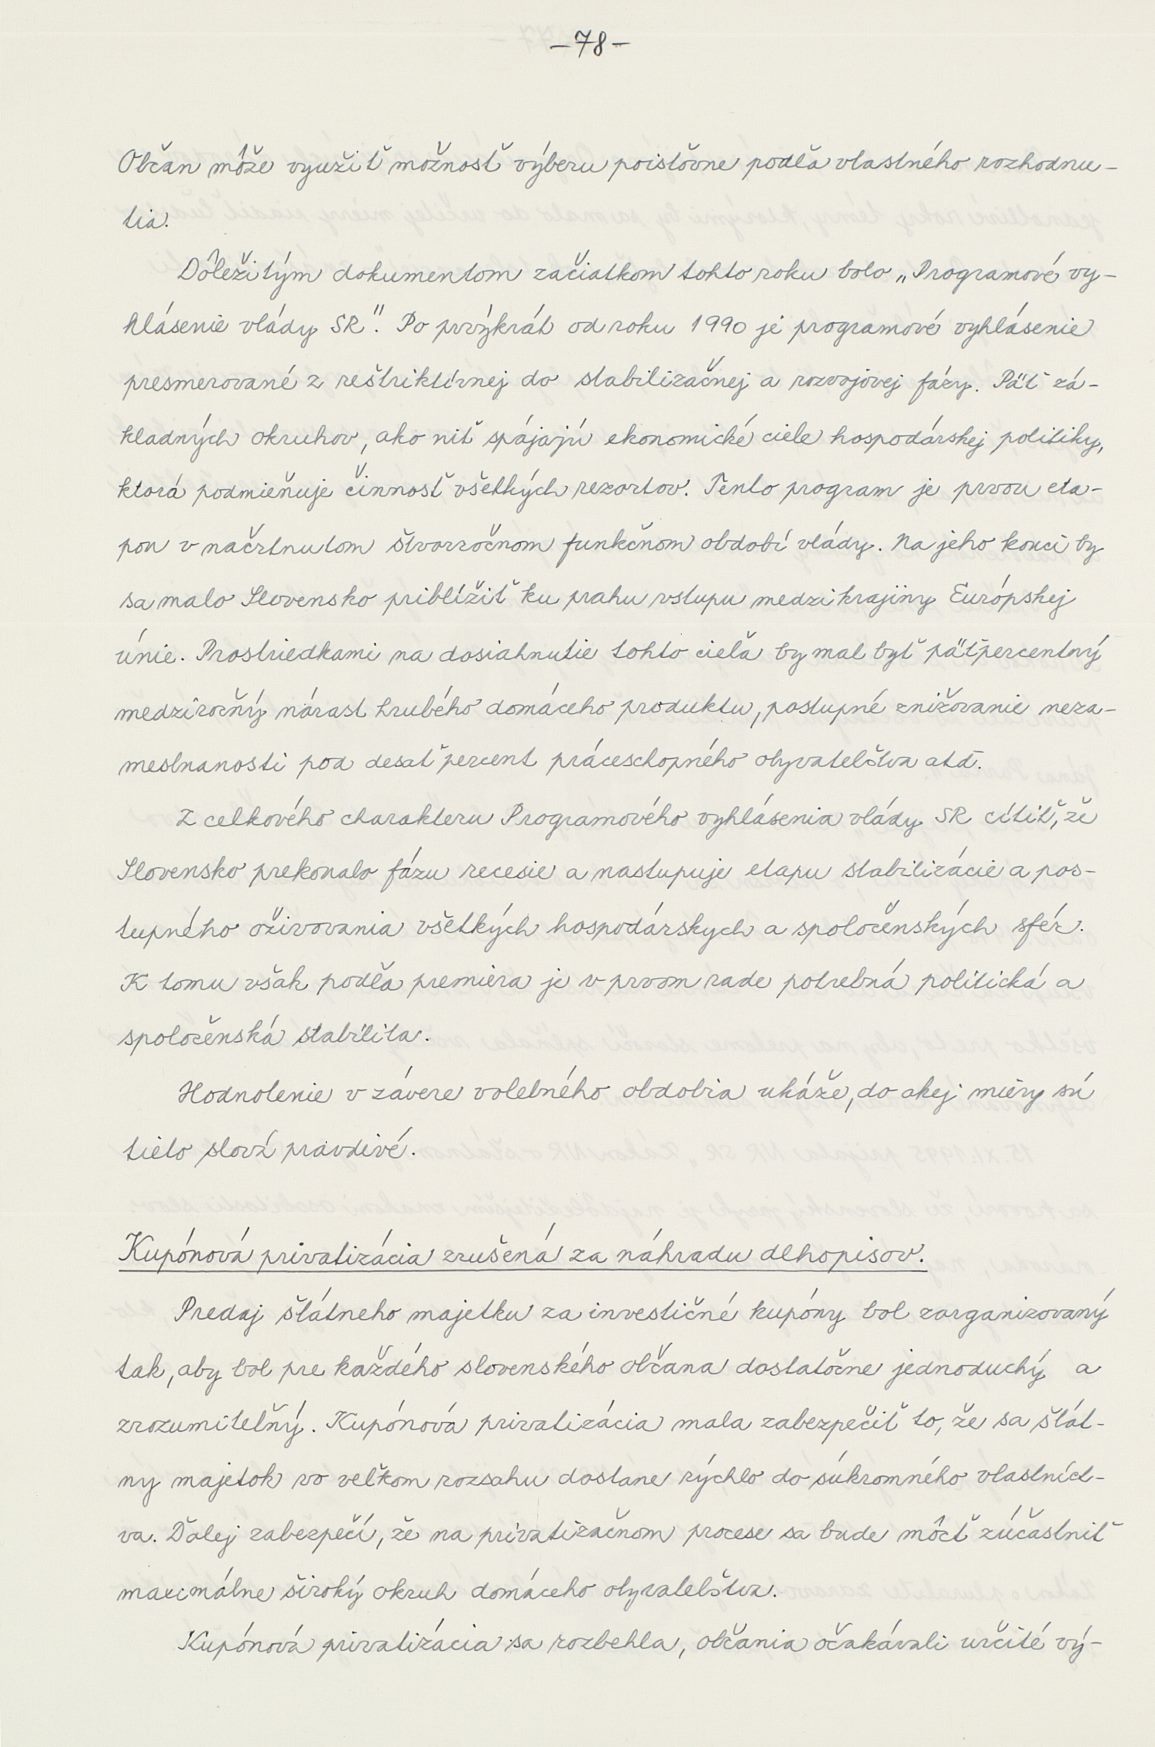 –78–
Občan môže využiť možnosť výberu poisťovne podľa vlastného rozhodnu–
tia.
Dôležitým dokumentom začiatkom tohto roku bolo „Programové vy–
hlásenie vlády SR". Po prvýkrát od roku 1990 je programové vyhlásenie
presmerované z reštriktívnej do stabilizačnej a rozvojovej fázy. Päť zá–
kladných okruhov, ako niť spájajú ekonomické ciele hospodárskej politiky,
ktorá podmieňuje činnosť všetkých rezortov. Tento program je prvou eta–
pou v načrtnutom štvorročnom funkčnom období vlády. Na jeho konci by
sa malo Slovensko priblížiť ku prahu vstupu medzi krajiny Európskej
únie. Prostriedkami na dosiahnutie tohto cieľa by mal byť päťpercentný
medziročný nárast hrubého domáceho produktu, postupné znižovanie neza–
mestnanosti pod desať percent práceschopného obyvateľstva atď.
Z celkového charakteru Programového vyhlásenia vlády SR cítiť, že
Slovensko prekonalo fázu recesie a nastupuje etapu stabilizácie a pos–
tupného oživovania všetkých hospodárskych a spoločenských sfér.
K tomu však podľa premiera je v prvom rade potrebná politická a
spoločenská stabilita.
Hodnotenie v závere volebného obdobia ukáže, do akej miery sú
tieto slová pravdivé.
Kupónová privatizácia zrušená za náhradu dlhopisov.
Predaj štátneho majetku za investičné kupóny bol zorganizovaný
tak, aby bol pre každého slovenského občana dostatočne jednoduchý a
zrozumiteľný. Kupónová privatizácia mala zabezpečiť to, že sa štát–
ny majetok vo veľkom rozsahu dostane rýchlo do súkromného vlastníct–
va. Ďalej zabezpečí, že na privatizačnom procese sa bude môcť zúčastniť
maximálne široký okruh domáceho obyvateľstva.
Kupónová privatizácia sa rozbehla, občania očakávali určité vý–